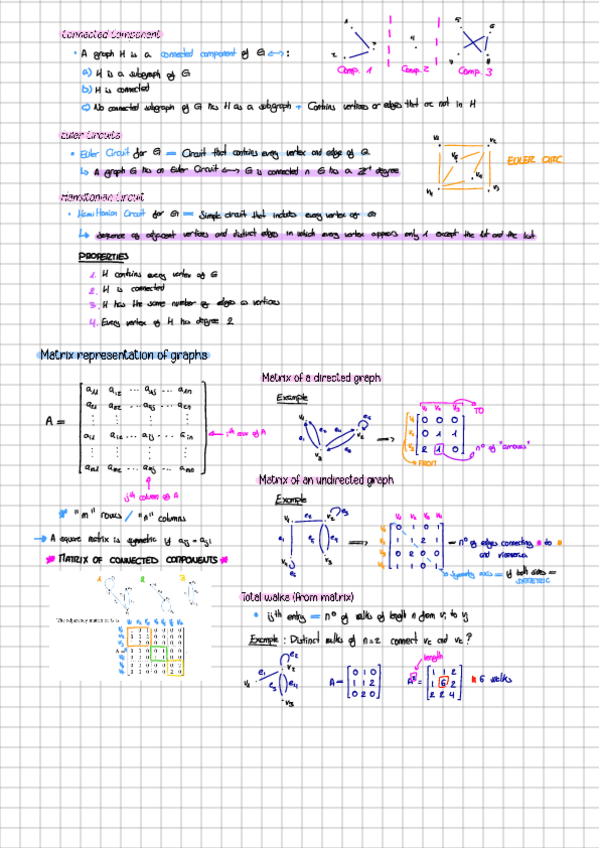 Connected Component
• A graph H is a connected component of G ⟷ :
a) H is a subgraph of G
b) H is connected
c) No connected subgraph of G has H as a subgraph + Contains vertices or edges that are not in H
Comp. 1
Comp. 2
Comp. 3
Euler Circuits
• Euler Circuit for G = Circuit that contains every vertex and edge of G
↳ A graph G has an Euler Circuit ⟷ G is connected ∧ G has a degree
EULER CIRC
Hamiltonian Circuit
• Hamiltonian Circuit for G = Simple circuit that includes every vertex of G
↳ Sequence of adjacent vertices and distinct edges in which every vertex appears only 1 except the 1st and the last
PROPERTIES
1. H contains every vertex of G
2. H is connected
3. H has the same number of edges as vertices
4. Every vertex of H has degree 2
Matrix representation of graphs
A =
of A
jth column of A
"m" rows / "n" columns
→ A square matrix is symmetric if aij = aji
* MATRIX OF CONNECTED COMPONENTS *
1 2 3
The adjacency matrix
A =
Matrix of a directed graph
Example
V1 V2 V3 TO
0 0 0
0 1 1
2 1 0
nº of "arrows"
FROM
Matrix of an undirected graph
Example
0 1 0 1
1 1 2 1
0 2 0 0
1 1 0 1
nº of edges connecting to
and viceversa
Symmetry axis = if both sides =
SYMMETRIC
Total walks (from matrix)
• ijth entry = nº of walks of length n from vi to vj
Example : Distinct walks of n=2 connect v2 and v2 ?
length
A =
0 1 0
1 1 2
0 2 0
A² =
1 1 2
1 6 2
2 2 4
6 walks